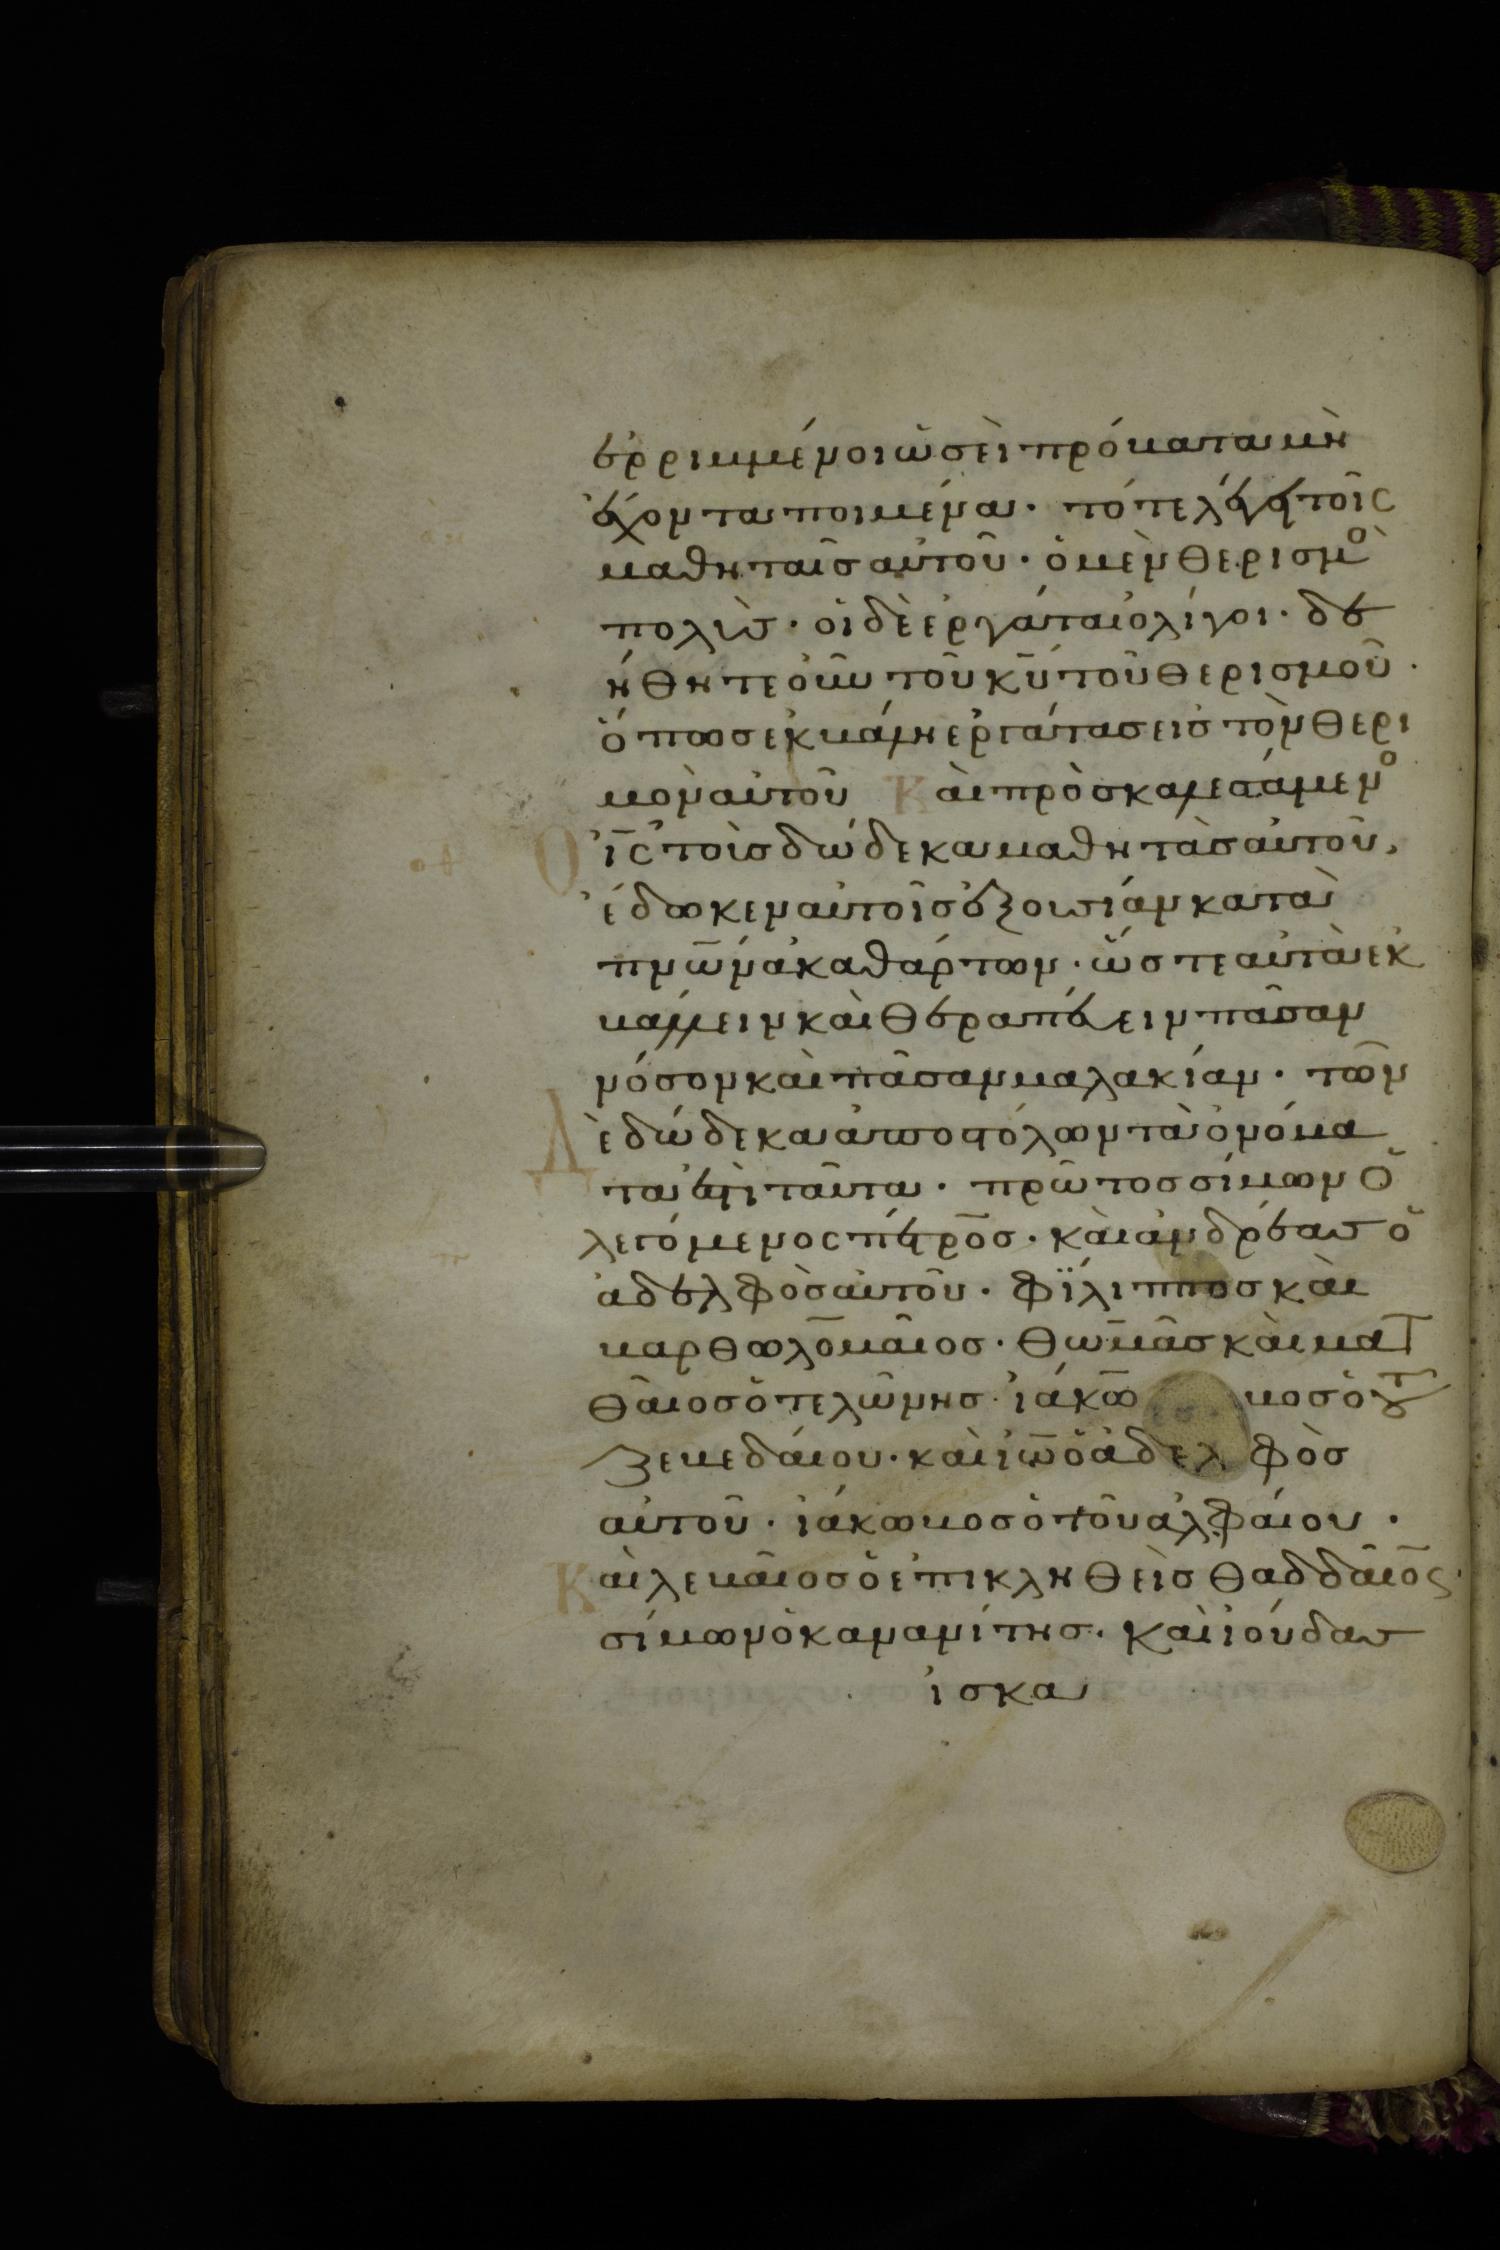 ἐρριμμένοι ὡσεὶ πρόβατα μὴ
ἔχοντα ποιμένα· τότε λέγει τοῖς
μαθηταῖς αὐτοῦ· ὁ μὲν θερισμὸ
πολὺς· οἱ δὲ ἐργάται ὀλίγοι· δε
ήθητε οὖν τοῦ κῡ τοῦ θερισμοῦ·
ὅπως ἐκβάλη ἐργάτας εἰς τὸν θερι
μὸν αὐτοῦ Καὶ προσκαλεσάμενο
Ὁ ἰς̄ τοὺς δώδεκα μαθητὰς αὐτοῦ,
ἔδωκεν αὐτοῖς ἐξουσίαν κατὰ
πνω̄ν ἀκαθάρτων· ὥστε αὐτὰ ἐκ
βάλλειν καὶ θεραπεύειν πᾶσαν
νόσον καὶ πᾶσαν μαλακίαν· τῶν
Δὲ δώδεκα ἀποστόλων τὰ ὀνόμα
τα ἐστὶ ταῦτα· πρῶτος σίμων ὁ
λεγόμενος πέτρος· καὶ ἀνδρέας ὁ
ἀδελφὸς αὐτοῦ· φίλιππος καὶ
βαρθολομαῖος· θωμᾶς καὶ ματ
θαῖος ὁ τελώνης· ἰάκω βος ὁ τοῦ
ζεβεδαίου· καὶ ἰω̄ ὁ ἀδελ φὸς
αὐτοῦ· ἰάκωβος ὁ τοῦ ἀλφαίου·
Καὶ λεβαῖος ὁ ἐπικληθεὶς θαδδαῖος·
σίμων ὁ κανανίτης· καὶ ἰούδας
ἰσκα